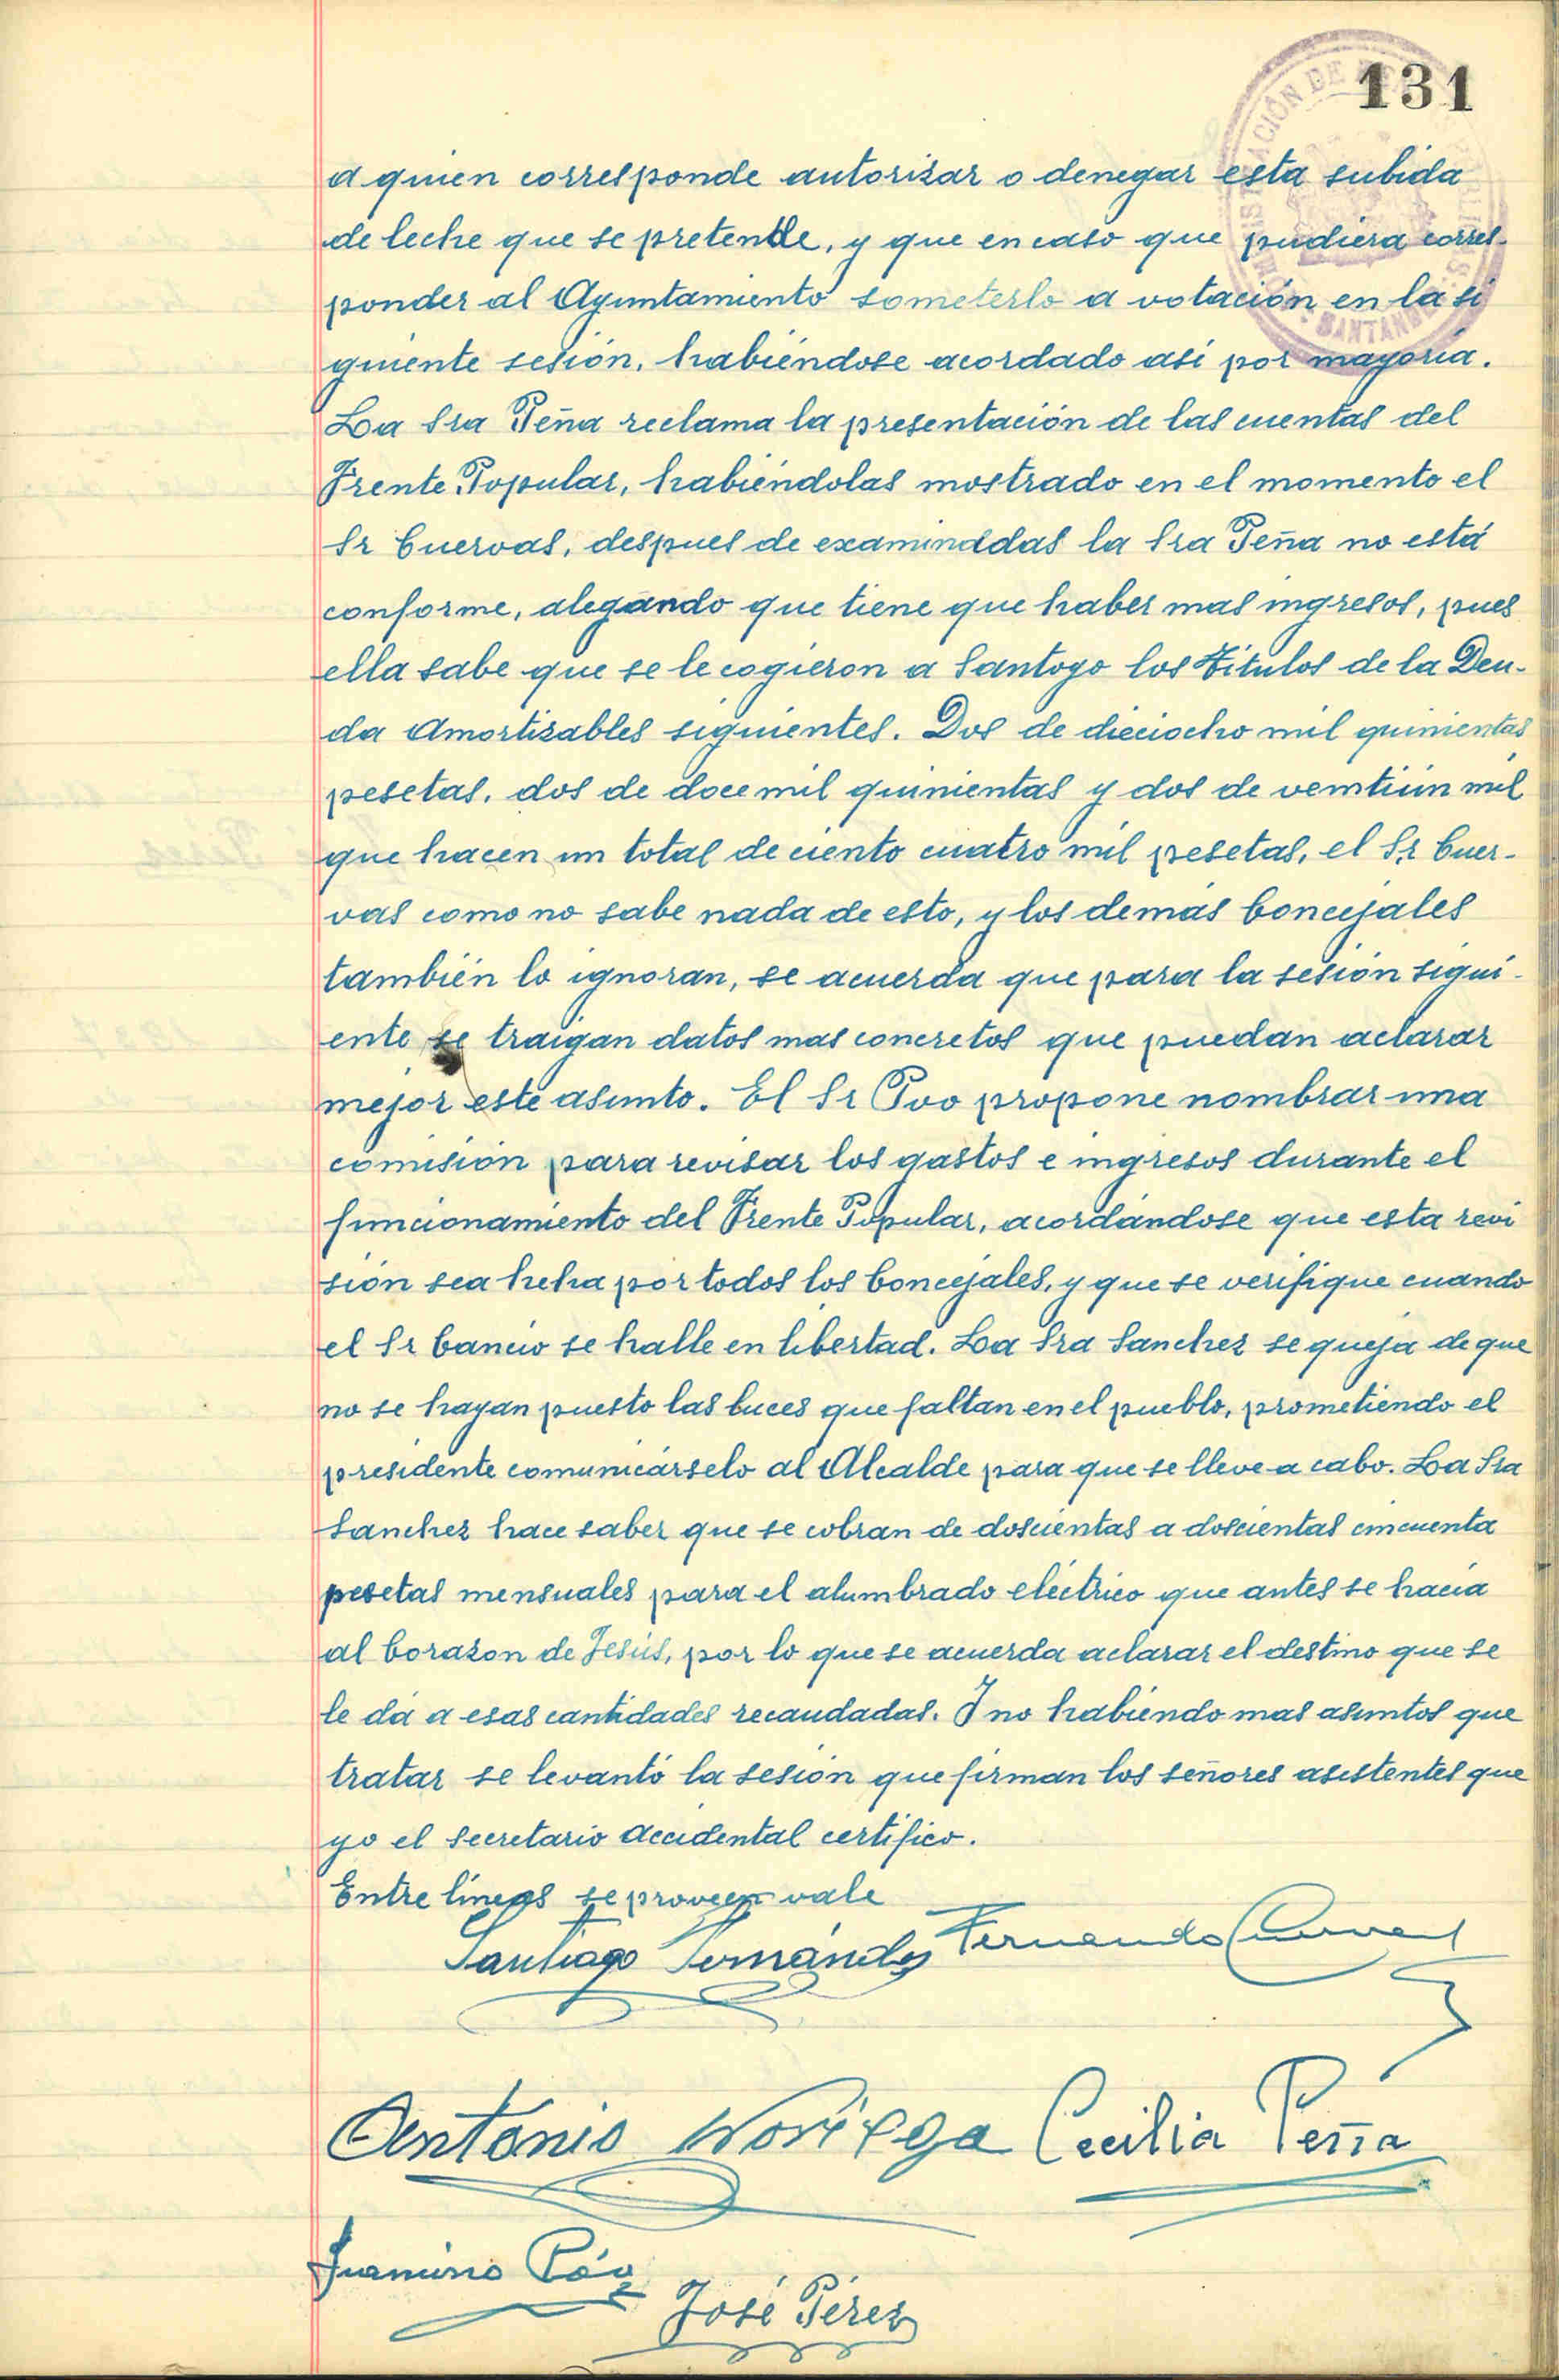 131
a quien corresponde autorizar o denegar esta subida
de leche que se pretende, y que en caso que pudiera corres-
ponder al Ayuntamiento someterlo a votación en la si
guiente sesión, habiéndose acordado así por mayoría.
La Sra Peña reclama la presentación de las cuentas del
Frente Popular, habiéndolas mostrado en el momento el
Sr Cuervas, despues de examinadas la Sra Peña no está
conforme, alegando que tiene que haber mas ingresos, pues
ella sabe que se le cogieron a Santoyo los Títulos de la Deu-
da Amortizables siguientes. Dos de dieciocho mil quinientas
pesetas, dos de doce mil quinientas y dos de veintiún mil
que hacen un total de ciento cuatro mil pesetas, el Sr Cuer-
vas como no sabe nada de esto, y los demás Concejales
también lo ignoran, se acuerda que para la sesión sigui-
ente se traigan datos mas concretos que puedan aclarar
mejor este asunto. El Sr Poo propone nombrar una
comisión para revisar los gastos e ingresos durante el
funcionamiento del Frente Popular, acordándose que esta revi
sión sea heha por todos los Concejales, y que se verifique cuando
el Sr Cancio se halle en libertad. La Sra Sanchez se queja de que
no se hayan puesto las luces que faltan en el pueblo, prometiendo el
presidente comunicárselo al Alcalde para que se lleve a cabo. La Sra
Sanchez hace saber que se cobran de doscientas a doscientas cincuenta
pesetas mensuales para el alumbrado eléctrico que antes se hacía
al Corazon de Jesús, por lo que se acuerda aclarar el destino que se
le dá a esas cantidades recaudadas. Y no habiendo mas asuntos que
tratar se levantó la sesión que firman los señores asistentes que
yo el Secretario accidental certifico.
Entre líneas se proveen vale
Santiago Fernández Fernando Cuervas
Antonio Noriega Cecilia Peña
José Pérez